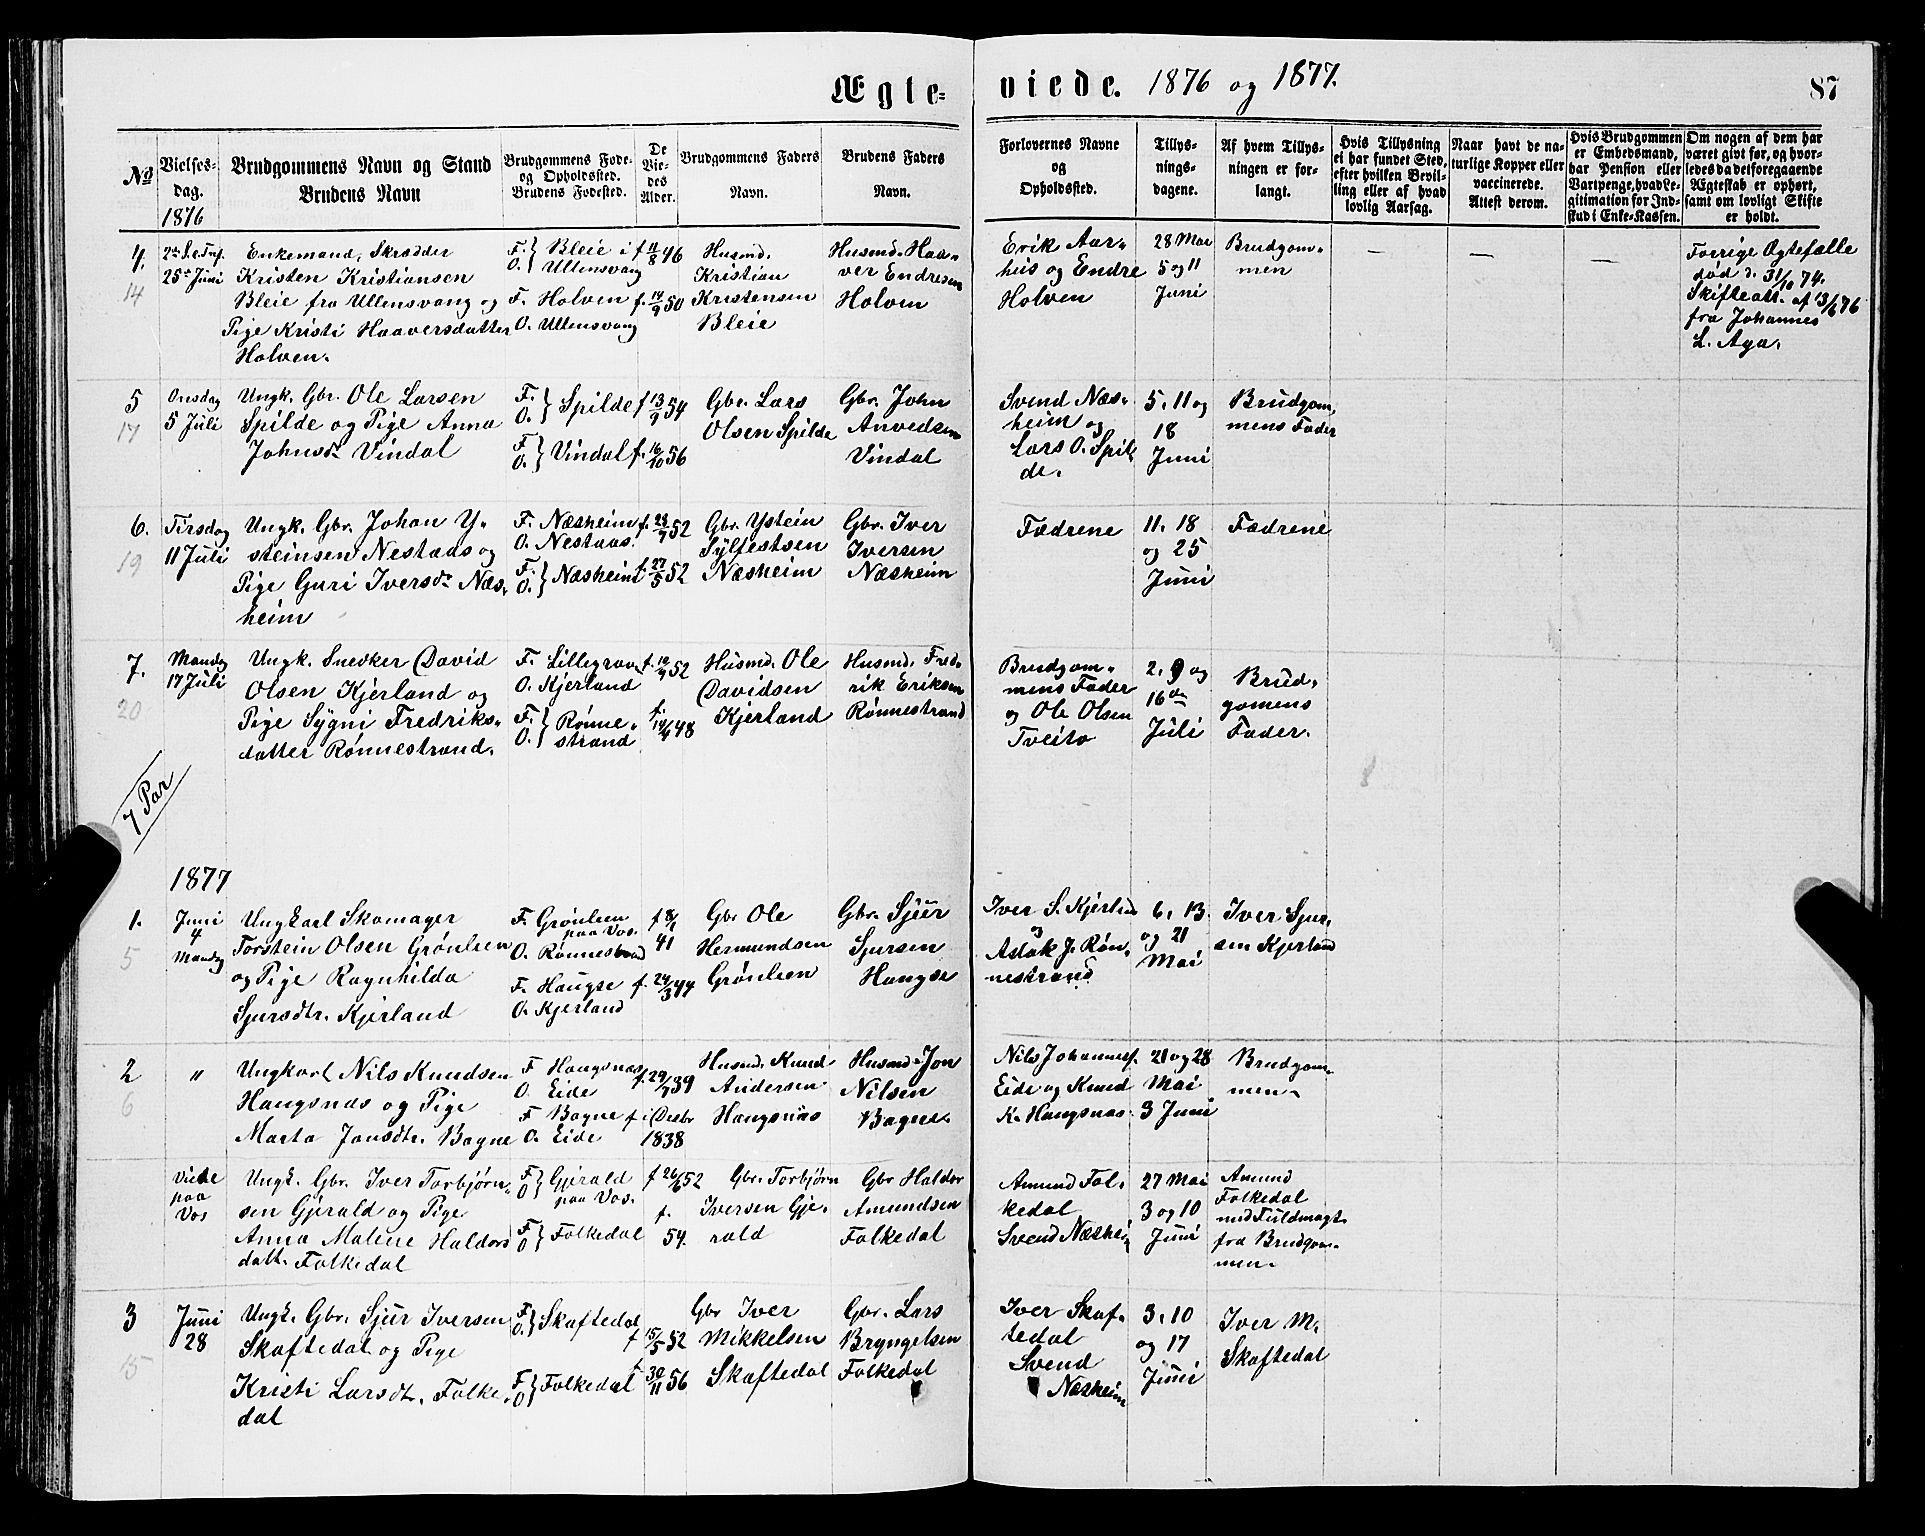 Ægte-
viede. 1876 og 1877.
87
No
Vielses-
dag.
1876
Brudgommens Navn og Stand
Brudens Navn
Brudgommens Føde-
og Opholdssted.
Brudens Fødested.
De
Vie-
des
Alder.
Brudgommens Faders
Navn.
Brudens Faders
Navn.
Forlovernes Navne
og
Opholdssted.
Tillys-
nings-
dagene.
Af hvem Tillys-
ningen er for-
langt.
Hvis Tillysning
ei har fundet Sted,
efter hvilken Bevil-
ling eller af hvad
lovlig Aarsag.
Naar havt de na-
turlige Kopper eller
vaccinerede.
Attest derom.
Hvis Brudgommen
er Embedsmand,
har Pension eller
Vartpenge, hvad Le-
gitimation for Ind-
skud i Enke-Kassen.
Om nogen af dem har
været givt før, og hvor-
ledes da det foregaaende
Ægteskab er ophørt,
samt om lovligt Skifte
er holdt.
4.
14
2den S. e. Tref.
25de Juni
Enkemand, Skrædder
Kristen Kristiansen
Bleie fra Ullensvang og
Pige Kristi Haaversdatter
Holven.
F. } Bleie i
O. } Ullensvang
F. Holven
O. Ullensvang
f. 11/8 46
f. 14/9 50
Husmd.
Kristian
Kristensen
Bleie
Husmd. Haa-
ver Endresen
Holven
Erik Aar-
hus og Endre
Holven
28 Mai
5 og 11
Juni
Brudgom-
men
—
—
—
Forrige Ægtefælle
død d. 31/10 74.
Skifteatt. af 13/6 76
fra Johannes
L. Aga.
5
17
Onsdag
5 Juli
Ungk. Gbr. Ole Larsen
Spilde og Pige Anna
Johnsdr. Vindal
F. } Spilde
O. }
F. } Vindal
O. }
f. 13/9 54
f. 16/10 56
Gbr. Lars
Olsen Spilde
Gbr. John
Arvedsen
Vindal
Svend Næs-
heim og
Lars O. Spil-
de.
5, 11 og
18
Juni
Brudgom-
mens Fader
6.
19
Tirsdag
11 Juli
Ungk. Gbr. Johan Y-
steinsen Nestaas og
Pige Guri Iversdr. Næs-
heim
F. Næsheim
O. Nestaas.
F. } Næsheim
O. }
f. 28/7 52
f. 27/5 52
Gbr. Ystein
Sylfestsen
Næsheim
Gbr. Iver
Iversen
Næsheim
Fædrene
11. 18
og 25
Juni
Fædrene
7.
20
Mandag
17 Juli
Ungk. Snedker David
Olsen Kjerland og
Pige Sygni Fredriks-
datter Rønnestrand.
F. Lillegraven
O. Kjerland
F. } Rønne-
O. } strand
f. 10/7 52
f. 14/4 48
Husmd. Ole
Davidsen
Kjerland
Husmd. Fred-
rik Eriksen
Rønnestrand
Brudgom-
mens Fader
og Ole Olsen
Tveito
2. 9 og
16de
Juli
Brud-
gomens
Fader.
7 Par
1877
1.
5
Juni
4
Mandag
Ungkarl Skomager
Torstein Olsen Grønlien
og Pige Ragnhilda
Sjursdtr. Kjerland
F. Grønlien
paa Vos.
O. Rønnestrand
F. Haugse
O. Kjerland
f 8/1
41
f. 24/3 44
Gbr Ole
Hermundsen
Grønlien
Gbr. Sjur
Sjursen
Haugse
Iver S. Kjerland
og
Aslak J. Røn-
nestrand
6, 13.
og 21
Mai
Iver Sjur-
sen Kjerland
2
6
"
Ungkarl Nils Knudsen
Haugsnæs og Pige
Marta Jonsdtr. Bagne
F Haugsnæs
O. Eide
F Bagne
O. Eide
f. 29/7 39
f i Decbr
1838
Husmd. Knud
Andersen
Haugsnæs
Husmd. Jon
Nilsen
Bagne
Nils Johannesf.
Eide og Knud
K. Haugsnæs.
21 og 28
Mai
3 Juni
Brudgom-
men
Viede
paa
Vos
Ungk. Gbr. Iver Torbjørn-
sen Gjerald og Pige
Anna Malene Haldors
datt. Folkedal
F } Gjerald
O } paa Vos.
F } Folkedal
O }
f 26/6 52
f.
54.
Gbr. Torbjørn
Iversen Gje-
rald
Gbr Haldor
Amundsen
Folkedal
Amund Fol-
kedal
Svend Næsheim
27 Mai
3 og 10
Juni
Amund
Folkedal
med Fuldmagt
fra Brudgom-
men.
3
15
Juni
28
Ungk. Gbr. Sjur Iversen
Skaftedal og Pige
Kristi Larsdtr. Folke-
dal
F. } Skaftedal
O. }
F } Folkedal
O }
f 15/5 52
f 30/11 56
Gbr Iver
Mikkelsen
Skaftedal
Gbr. Lars
Bryngelsen
Folkedal
Iver Skaf-
tedal
Svend
Næsheim
3, 10
og 17
Juni
Iver M.
Skaftedal